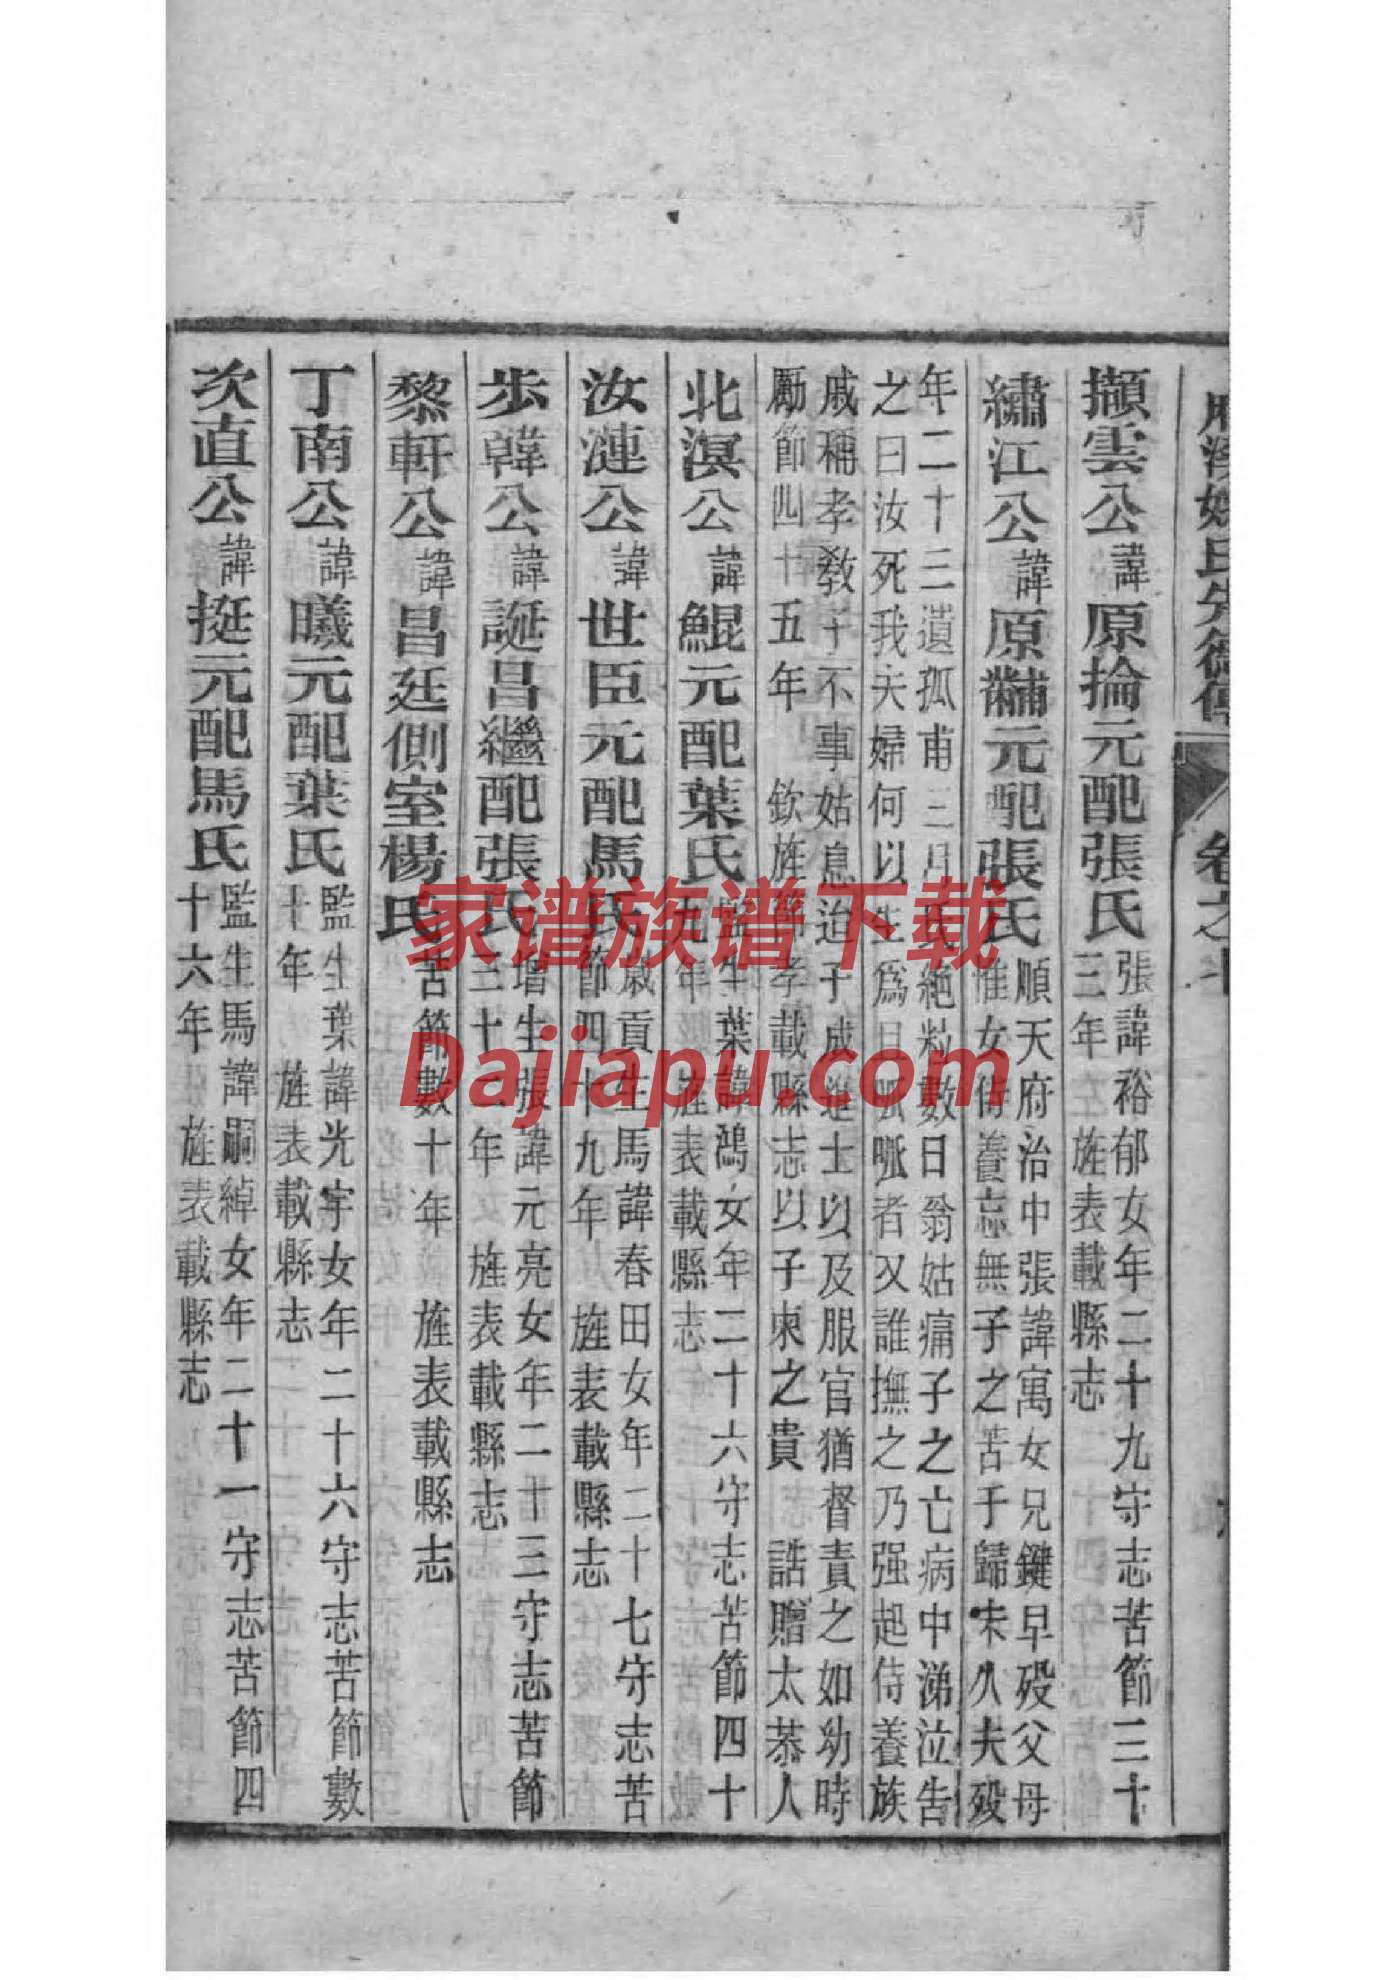 姚氏先德傳
卷之七
擷雲公諱原掄元配張氏 張諱裕郁女年二十九守志苦節三十
三年 旌表載縣志
繡江公諱原黼元配張氏 順天府治中張諱寓女兄鍵早殁父母
惟女侍養忘無子之苦于歸未久夫殁
年二十三遺孤甫三 絶粒數日翁姑痛子之亡病中涕泣告
之曰汝死我夫婦何以生爲且呱呱者又誰撫之乃强起侍養族
戚稱孝教子不事姑息迨子成進士以及服官猶督責之如幼時
勵節四十五年 欽旌節孝載縣志以子柬之貴 誥贈太恭人
北溟公諱鯤元配葉氏 監生葉諱鴻女年二十六守志苦節四十
年 旌表載縣志
汝漣公諱世臣元配馬氏 歲貢生馬諱春田女年二十七守志苦
節四十九年 旌表載縣志
步韓公諱誕昌繼配張氏 增生張諱元亮女年二十三守志苦節
三十二年 旌表載縣志
黎軒公諱昌廷側室楊氏 苦節數十年 旌表載縣志
丁南公諱曦元配葉氏 監生葉諱光宇女年二十六守志苦節數
十年 旌表載縣志
次直公諱挺元配馬氏 監生馬諱嗣綽女年二十一守志苦節四
十六年 旌表載縣志
家谱族谱下载
Dajiapu.com